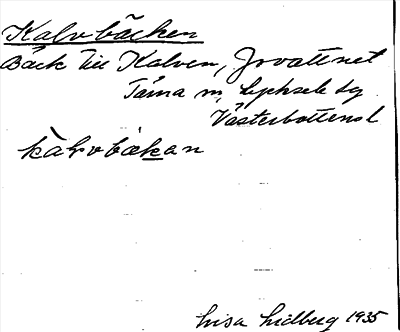 Kalvbäcken
Bäck till Kalven, Jovattnet
Tärna sn, Lycksele dg
Västerbottens l
kalvbäkan
Lisa Lidberg 1935